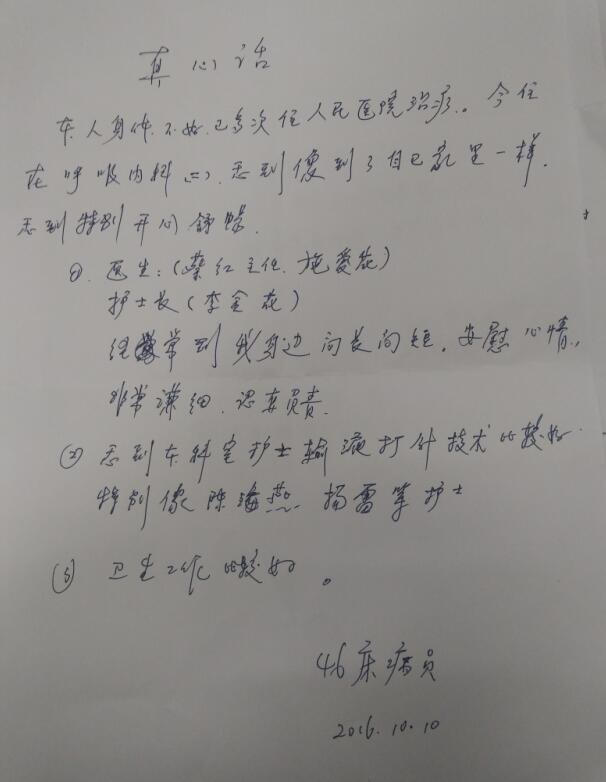 真心话
本人身体不好,已多次住人民医院治疗。今住
在呼吸内科(二),感到像到了自已家里一样.
感到特别开心舒畅.
①.医生:(蔡红主任.施爱花)
护士长(李金花)
经常到我身边问长问短,安慰心情,
非常详细.认真负责.
② 感到本科室护士输液打针技术比较好.
特别像陈海燕 杨雷等护士
(3) 卫生工作比较好。
46床病员
2016.10.10